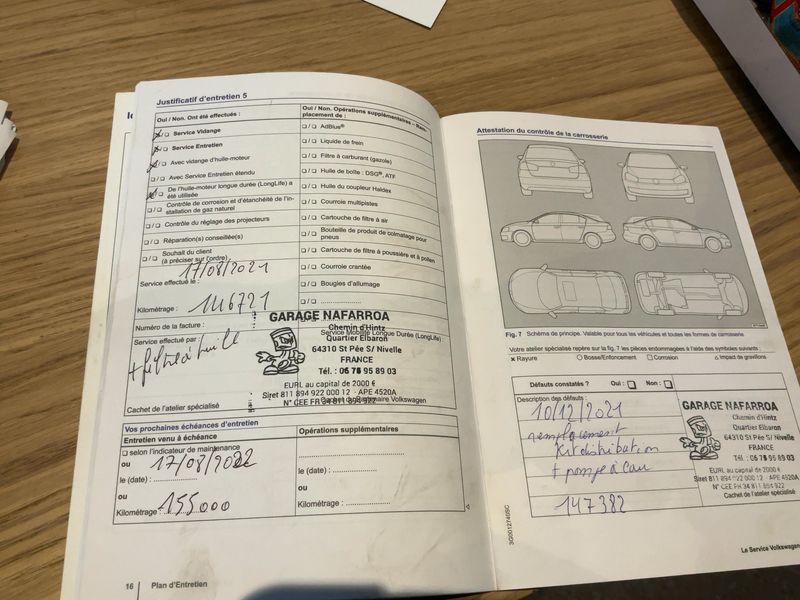 Justificatif d'entretien 5
Oui / Non. Ont été effectués :
Service Vidange
Service Entretien
Avec vidange d'huile-moteur
Avec Service Entretien étendu
De l'huile-moteur longue durée (LongLife) a été utilisée
Contrôle de corrosion et d'étanchéité de l'installation de gaz naturel
Contrôle du réglage des projecteurs
Réparation(s) conseillée(s)
Souhait du client
(à préciser sur l'ordre)
Service effectué le : 17/08/2021
Kilométrage : 146721
Numéro de la facture :
Service effectué par
+ filtre à huile
Cachet de l'atelier spécialisé
Oui / Non. Opérations supplémentaires – Remplacement de :
AdBlue®
Liquide de frein
Filtre à carburant (gazole)
Huile de boîte : DSG®, ATF
Huile du coupleur Haldex
Courroie multipistes
Cartouche de filtre à air
Bouteille de produit de colmatage pour pneus
Cartouche de filtre à poussière et à pollen
Courroie crantée
Bougies d'allumage
Service Mobilité Longue Durée (LongLife) :
GARAGE NAFARROA
Chemin d'Hintz
Quartier Elbaron
64310 St Pée S/ Nivelle
FRANCE
Tél. : 06 76 95 89 03
EURL au capital de 2000 €
Siret 811 894 922 000 12 - APE 4520A
N° CEE FR 34 811 894 922
Vos prochaines échéances d'entretien
Entretien venu à échéance
selon l'indicateur de maintenance
ou
le (date) : 17/08/2022
ou
Kilométrage : 155000
Opérations supplémentaires
le (date) :
ou
Kilométrage :
16 Plan d'Entretien
Attestation du contrôle de la carrosserie
Fig. 7 Schéma de principe. Valable pour tous les véhicules et toutes les formes de carrosserie.
Votre atelier spécialisé repère sur la fig. 7 les pièces endommagées à l'aide des symboles suivants :
× Rayure ○ Bosse/Enfoncement □ Corrosion △ Impact de gravillons
Défauts constatés ? Oui : Non :
Description des défauts :
10/12/2021
remplacement
Kit distribution
+ pompe à eau
147382
GARAGE NAFARROA
Chemin d'Hintz
Quartier Elbaron
64310 St Pée S/ Nivelle
FRANCE
Tél. : 06 76 95 89 03
EURL au capital de 2000 €
Siret 811 894 922 000 12 - APE 4520A
N° CEE FR 34 811 894 922
Cachet de l'atelier spécialisé
3G0012740SC
Le Service Volkswagen